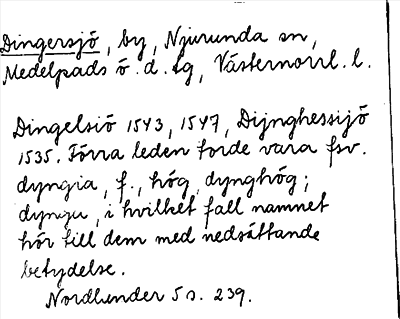 Dingersjö, by, Njurunda sn,
Medelpads ö. d. tg, Västernorrl. l.
Dingelsiö 1543, 1547, Dijnghessijö
1535. Förra leden torde vara fsv.
dyngia, f., hög, dynghög;
dyngu, i hvilket fall namnet
hör till dem med nedsättande
betydelse.
Nordlunder 5 s. 239.